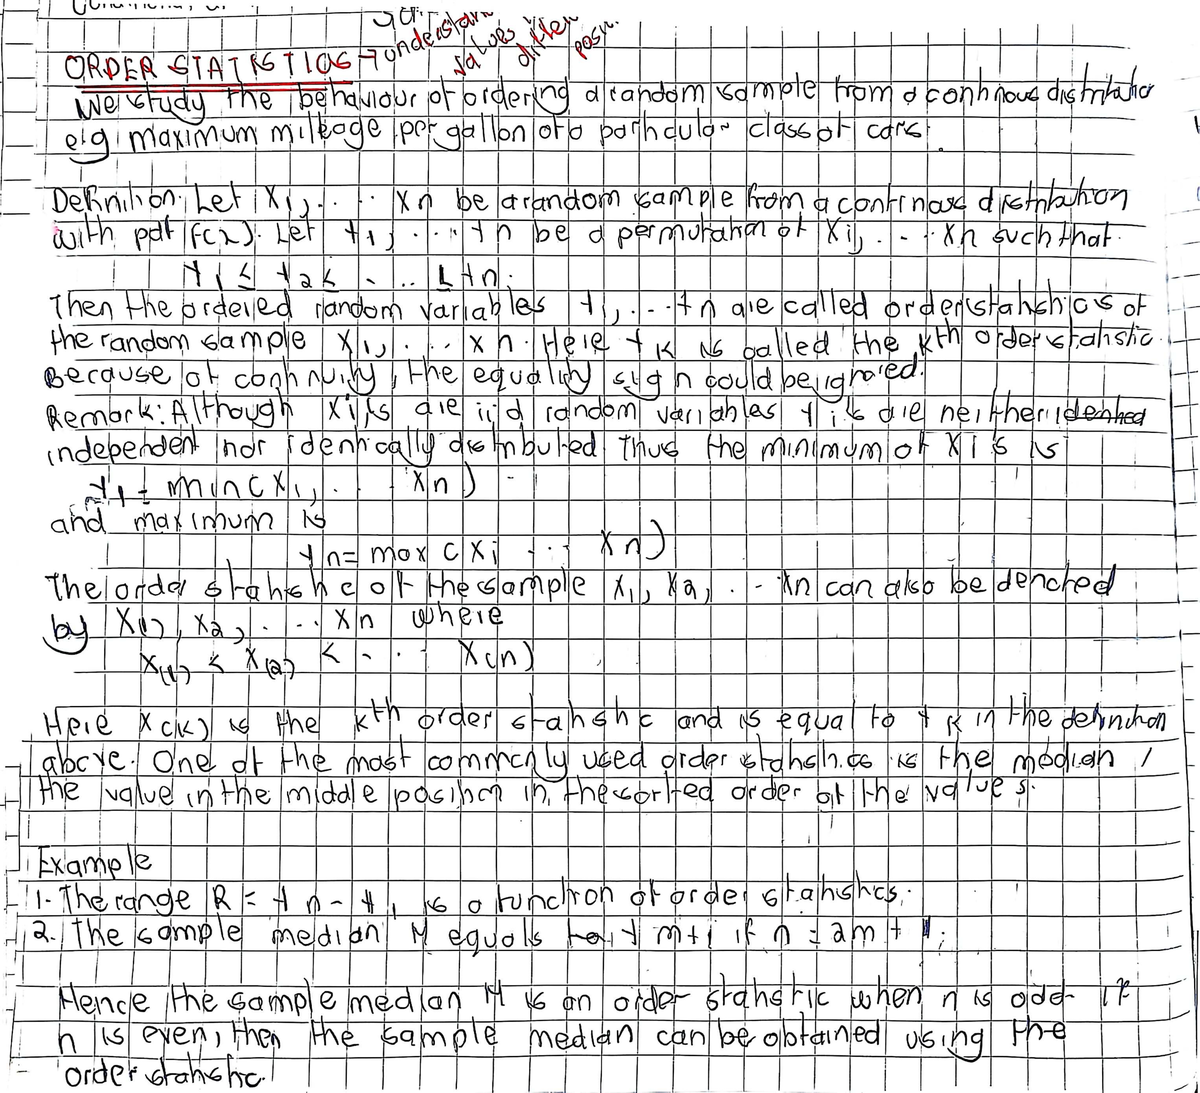 ORDER STATISTICS → understand
values
differ
We study the behaviour of ordering a random sample from a continous distribution
e.g maximum mileage per gallon of a particular class of cars.
Definition: Let X1, .... Xn be a random sample from a continous distribution
with pdf f(x). Let Y1, .... Yn be a permutation of Xi, .... Xn such that.
Y1 ≤ Y2 ≤ .... ≤ Yn.
Then the ordered random variables Y1, ... Yn are called order statistics of
the random sample X1, .... Xn. Here YK is called the kth order statistic.
Because of continuity, the equality sign could be ignored.
Remark: Although Xi's are iid random variables Yi's are neither
independent nor identically distributed. Thus the minimum of Xi's is
Y1 = min(X1, .... Xn)
and maximum is
Yn = max(Xi .... Xn)
The order statistic of the sample X1, X2, ... Xn can also be denoted
by X(1), X2, .... Xn where
X(1) < X(2) < .... X(n)
Here X(k) is the kth order statistic and is equal to YK in the definition
above. One of the most commonly used order statistics is the median,
the value in the middle position in the sorted order of the values.
Example
1. The range R = Yn - Y1 is a function of order statistics.
2. The sample median M equals to Ym+1 if n = 2m + 1;
Hence the sample median M is an order statistic when n is odd. If
n is even, then the sample median can be obtained using the
order statistic.